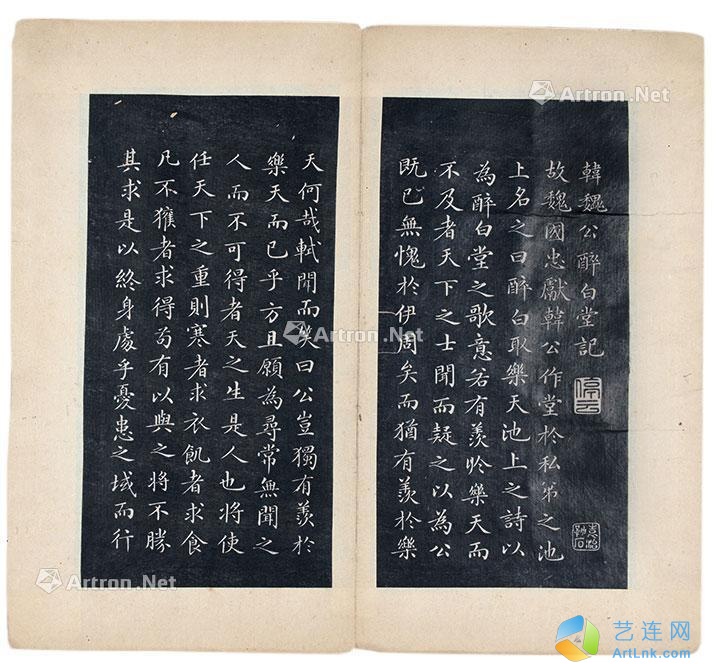 韓魏公醉白堂記
故魏國忠獻韓公作堂於私第之池
上名之曰醉白取樂天池上之詩以
為醉白堂之歌意若有羨於樂天而
不及者天下之士聞而疑之以為公
既已無愧於伊周矣而猶有羨於樂
天何哉軾聞而笑曰公豈獨有羨於
樂天而已乎方且願為尋常無聞之
人而不可得者天之生是人也將使
任天下之重則寒者求衣飢者求食
凡不獲者求得苟有以與之將不勝
其求是以終身處乎憂患之域而行
Artron.Net
Artron.Net
Artron.Net
Artron.Net
艺连网
ArtLnk.com